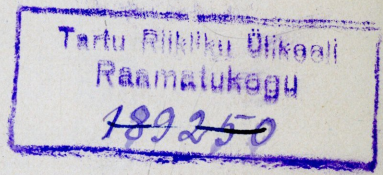 Tartu Riikliku Ülikooli
Raamatukogu
189250